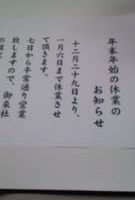 年末年始の休業の
お知らせ
十二月二十九日より、
一月六日まで休業させ
て頂きます。
七日から平常通り営業
致しますので、御来社